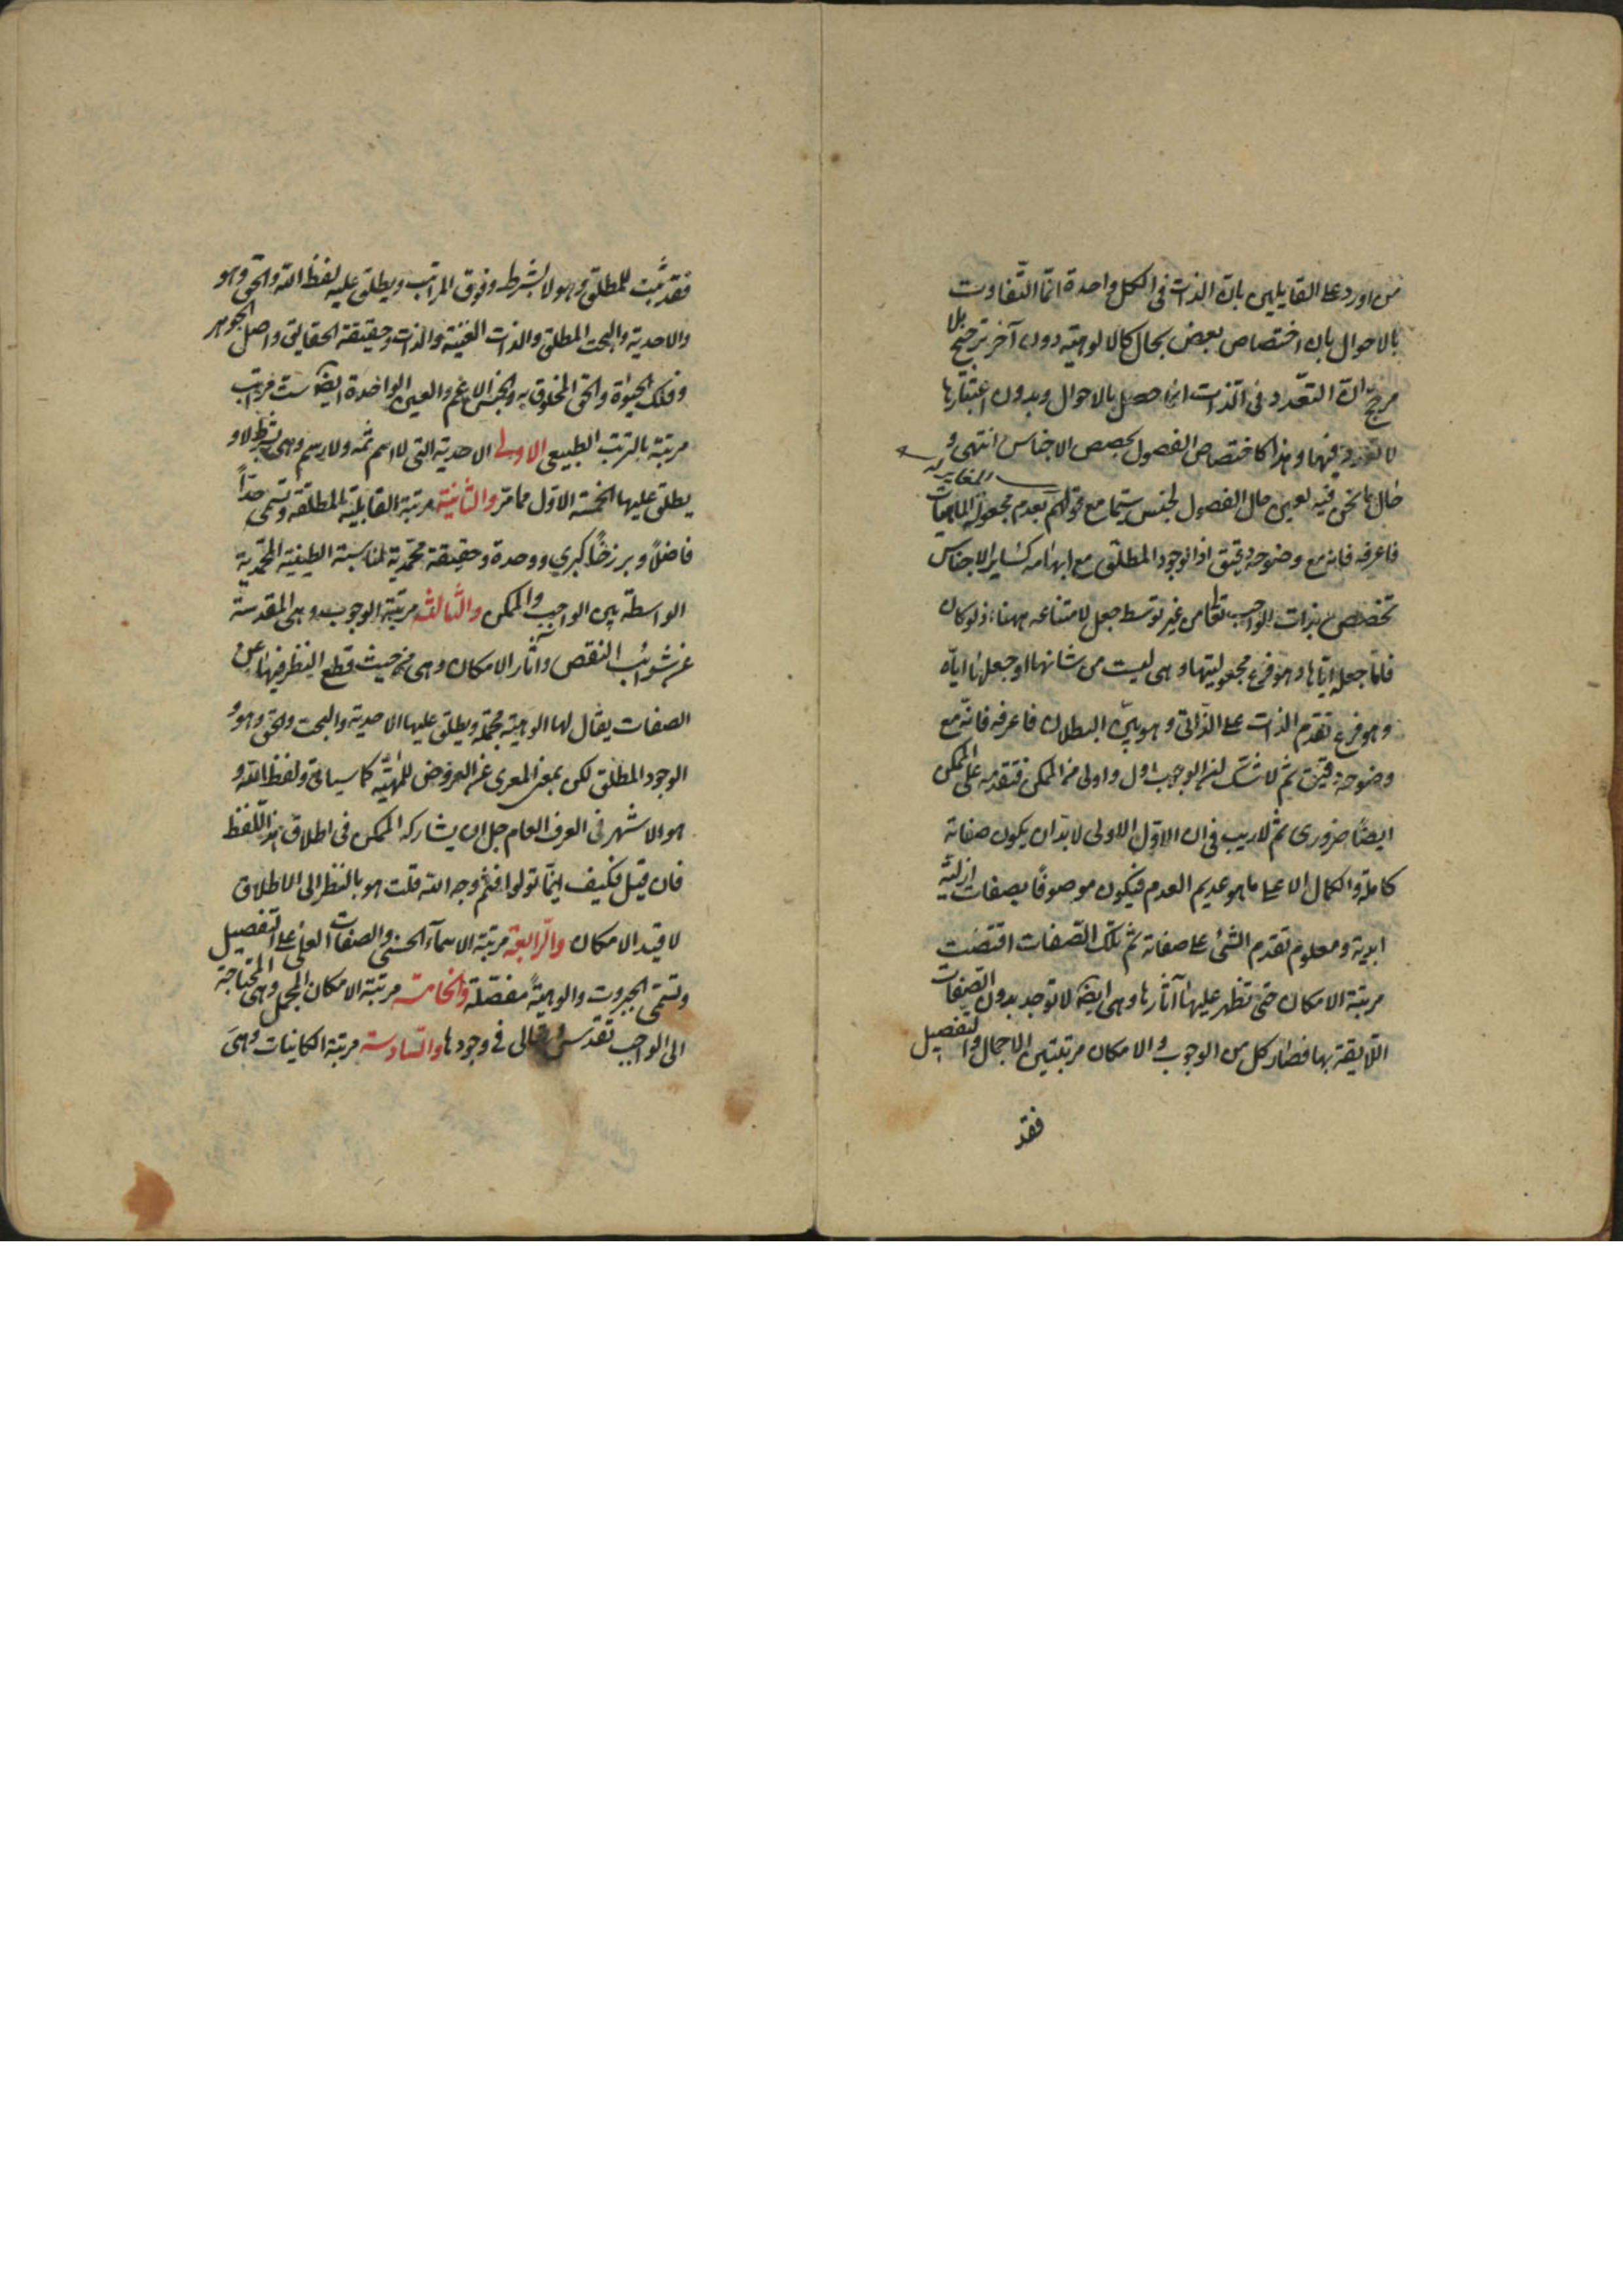 من اورد على القايلين بان الذات فى الكل واحدة انما التفاوت
بالاحوال بان اختصاص بعض بحال كالالوهية دون آخر ترجيح بلا
مرجح ان التعدد فى الذات انما حصل بالاحوال وبدون اعتبارها
لا تعدد فيها وهذا كاختصاص الفصول بحصص الاجناس انتهى و
المغايرة
حال ما نحن فيه لعين حال الفصول لجنس سيما مع قولهم بعدم مجعولية الماهيات
فاعرفه فانه مع وضوحه دقيق اذ الوجود المطلق مع ابهامه كساير الاجناس
تخصص بذات الواجب تعا من غير توسط جعل لامتناعه ههنا اذ لو كان
فاما جعله اياها وهو فرع مجعوليتها وهى ليست من شانها او جعلها اياه
وهو فرع تقدم الذات على الذاتى وهو بين البطلان فاعرفه فانه مع
وضوحه دقيق ثم لا شك ان الوجوب اول واولى من الممكن فتقدمه على الممكن
ايضا ضرورى ثم لا ريب فى ان الاول الاولى لا بد ان يكون صفاته
كاملة والكمال الاعلى ما هو عديم العدم فيكون موصوفا بصفات ازلية
ابدية ومعلوم تقدم الشئ على صفاته ثم تلك الصفات اقتضت
مرتبة الامكان حتى تظهر عليها آثارها وهى ايضا لا توجد بدون الصفات
اللايقة بها فصار كل من الوجوب والامكان مرتبتين الاجمال والتفصيل
فقد
فقد ثبت للمطلق وهو لا بشرط وفوق المراتب ويطلق عليه لفظ الله والحق وهو
والاحدية والبحت المطلق والذات الغنية والذات وحقيقة الحقايق واصل الجوهر
وفلك الحيوة والحق المخلوق به والجنس الاعم والعين الواحدة ايضا ست مراتب
مرتبة بالترتب الطبيعى الاولى الاحدية التى لا اسم ثمه ولا رسم وهى بشرط لا و
يطلق عليها الخمسة الاول مما مر والثانية مرتبة القابلية المطلقة وتسمى حدا
فاضلا وبرزخا كبرى ووحدة وحقيقة محمدية لمناسبة الطينية المحمدية
الواسطة بين الواجب والممكن والثالثة مرتبة الوجوب وهى المقدسة
عن شوائب النقص وآثار الامكان وهى من حيث قطع النظر فيها عن
الصفات يقال لها الوهية مجملة ويطلق عليها الاحدية والبحت والحق وهو و
الوجود المطلق لكن بمعنى المعرى عن العروض للمهية كما سياتى ولفظ الله و
هو الاشهر فى العرف العام جل ان يشاركه الممكن فى اطلاق هذا اللفظ
فان قيل فكيف اينما تولوا فثم وجه الله قلت هو بالنظر الى الاطلاق
لا قيد الامكان والرابعة مرتبة الاسماء الحسنى والصفات العلى على التفصيل
وتسمى الجبروت والوهية مفصلة والخامسة مرتبة الامكان المجمل وهى المحتاجة
الى الواجب تقدس وتعالى فى وجودها والسادسة مرتبة الكاينات وهى